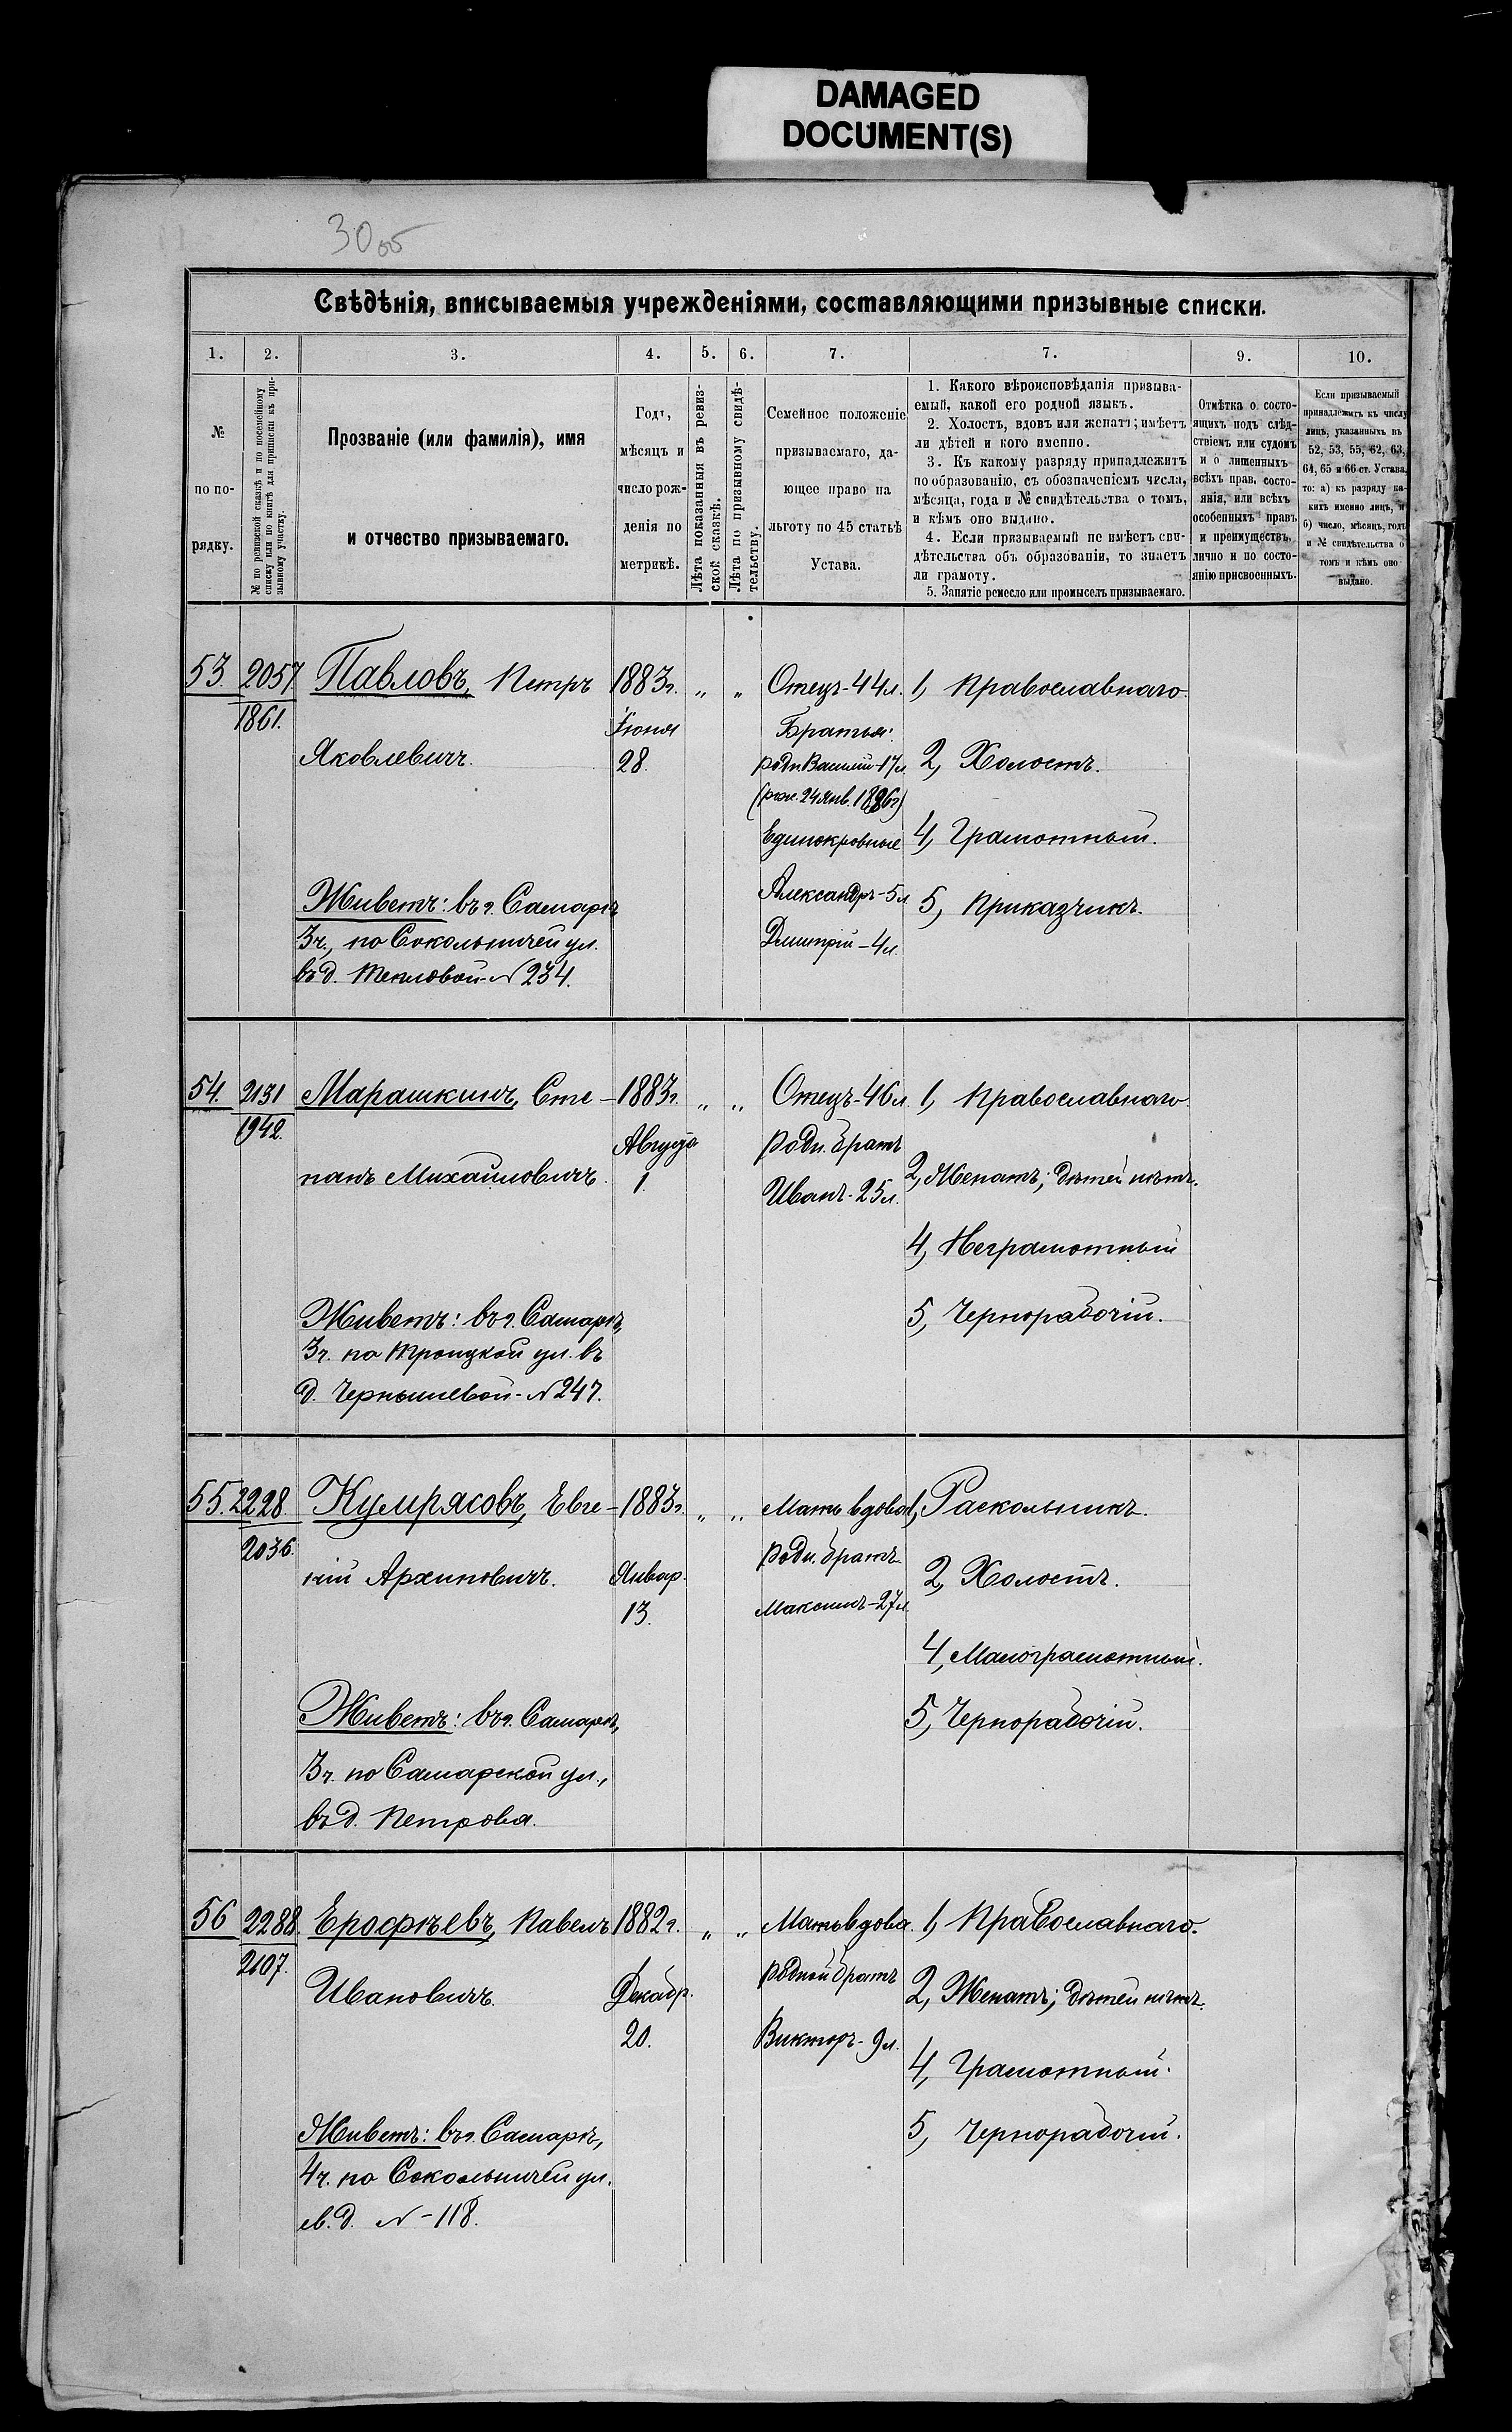 DAMAGED
DOCUMENT(S)
30об
Свѣдѣнія, вписываемыя учрежденіями, составляющими призывные списки.
1. 2. 3. 4. 5. 6. 7. 7. 9. 10.
№
по по-
рядку.
№ по ревизской сказкѣ и по посемейному
списку или по книгѣ для приписки къ при-
зывному участку.
Прозваніе (или фамилія), имя
и отчество призываемаго.
Годъ,
мѣсяцъ и
число рож-
денія по
метрикѣ.
Лѣта показанныя въ ревиз-
ской сказкѣ.
Лѣта по призывному свидѣ-
тельству.
Семейное положеніе
призываемаго, да-
ющее право на
льготу по 45 статьѣ
Устава.
1. Какого вѣроисповѣданія призыва-
емый, какой его родной языкъ.
2. Холостъ, вдовъ или женатъ; имѣетъ
ли дѣтей и кого именно.
3. Къ какому разряду принадлежитъ
по образованію, съ обозначеніемъ числа,
мѣсяца, года и № свидѣтельства о томъ,
и кѣмъ оно выдано.
4. Если призываемый не имѣетъ сви-
дѣтельства объ образованіи, то знаетъ
ли грамоту.
5. Занятіе ремесло или промыселъ призываемаго.
Отмѣтка о состо-
ящихъ подъ слѣд-
ствіемъ или судомъ
и о лишенныхъ
всѣхъ прав, состо-
янія, или всѣхъ
особенныхъ правъ
и преимуществъ,
лично и по состо-
янію присвоенныхъ.
Если призываемый
принадлежитъ къ числу
лицъ, указанныхъ въ
52, 53, 55, 62, 63,
64, 65 и 66 ст. Устава,
то: а) къ разряду ка-
кихъ именно лицъ, и
б) число, мѣсяцъ, годъ
и № свидѣтельства о
томъ и кѣмъ оно
выдано.
53. 2057 Павловъ, Петръ 1883г. „ „ Отецъ-44л. 1, Православнаго.
1861. Іюня Братья:
Яковлевичъ. 28. родн. Василій-17л. 2, Холостъ.
(рож. 24 Янв. 1886г)
Единокровные 4, Грамотный.
Живетъ: въ г. Самарѣ Александръ-5л. 5, Приказчикъ.
3ч., по Сокольничей ул. Дмитрій-4л.
въ д. Тепловой-№ 234.
54. 2131 Марашкинъ, Сте- 1883г. „ „ Отецъ-46л. 1, Православнаго
1942. Августа родн. братъ
панъ Михайловичъ. 1. Иванъ-25л. 2, Женатъ; дѣтей нѣтъ.
4, Неграмотный
Живетъ: въ г. Самарѣ, 5, Чернорабочій.
3ч. по Троицкой ул. въ
д. Чернышевой-№ 247.
55. 2228. Кумрясовъ, Евге- 1883г. „ „ Мать вдова 1, Раскольникъ.
2036. родн. братъ
ній Архиповичъ. Январ. 2, Холостъ.
13. Максимъ-27л.
4, Малограмотный.
Живетъ: въ г. Самарѣ, 5, Чернорабочій.
3ч. по Самарской ул.,
въ д. Петрова.
56 2288. Ерофѣевъ, Павелъ 1882г. „ „ Мать вдова. 1, Православнаго.
2107. родной братъ
Ивановичъ. Декабр. 2, Женатъ; дѣтей нѣтъ.
20. Викторъ-9л.
4, Грамотный.
Живетъ: въ г. Самарѣ, 5, Чернорабочій.
4ч. по Сокольничей ул.
в. д. №-118.